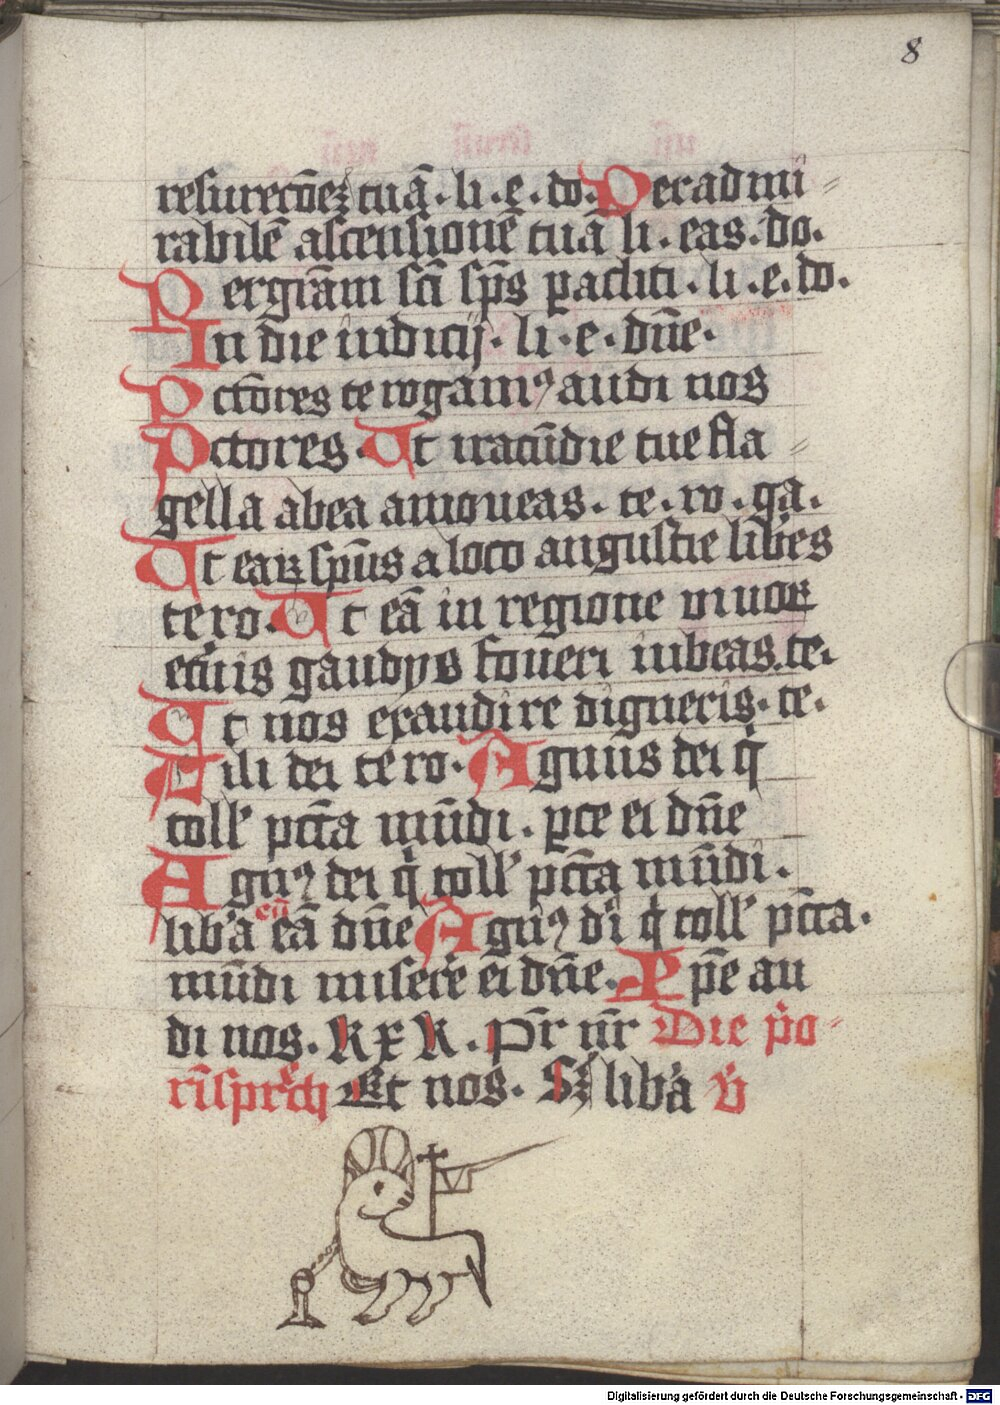 8
resureccōeꝫ tuā · li · e · do · Per ad mi
rabilē ascensionē tuā li · eas · do ·
Per grām sc̄i sp̄s paracliti · li · e · do ·
In die iudicij · li · e · dn̄e ·
Pctōres te rogamꝰ audi nos
Pctores · Ut iracūdie tue fla
gella ab ea amoueas · te · ro · ga ·
Ut eaꝫ sp̄us a loco angustie lib̓es
te ro · Ut eā in regione viuoꝝ
et̓nis gaudijs foueri iubeas · te ·
Ut nos exaudire digneris · te ·
Fili dei te ro · Agnus dei q̇
toll̓ pctā mūdi · pce ei dn̄e
Agnꝰ dei q̇ toll̓ pctā mūdi ·
lib̓a eā dn̄e Agnꝰ di q̇ toll̓ pctā ·
mūdi misere ei dn̄e · Xp̄e au
di nos · k x k · Pr̄ nr̄ Die p̓o
rīn sp̓ch Et nos · Sꝫ lib̓a v̓
Digitalisierung gefördert durch die Deutsche Forschungsgemeinschaft - DFG